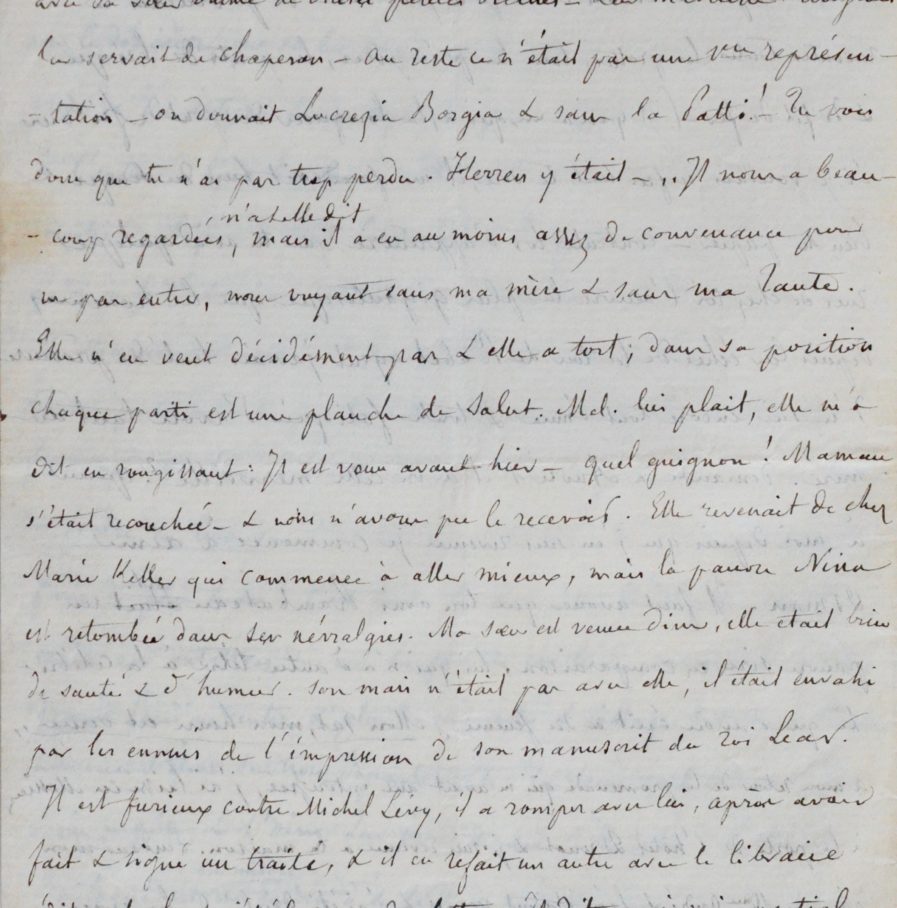 lui servait de chaperon – au reste ce n'était pas une vraie représen-
-tation – on donnait Lucrezia Borgia & sans la Patti! Tu vois
donc que tu n'as pas trop perdu. Herren y était – „Il nous a beau-
n'a t elle dit
-coup regardées, mais il a eu au moins assez de convenance pour
ne pas entrer, nous voyant sans ma mère & sans ma tante.
Elle n'en veut décidément pas & elle a tort; dans sa position
chaque parti est une planche de salut. Md. lui plait, elle m'a
dit en rougissant: Il est venu avant hier – quel guignon! Maman
s'était recouchée – & nous n'avons pu le recevoir. Elle revenait de chez
Marie Keller qui commence à aller mieux, mais la pauvre Nina
est retombée dans ses névralgies. Ma sœur est venue diner, elle était bien
de santé & d'humeur. son mari n'était pas avec elle, il était envahi
par les ennuis de l'impression de son manuscrit du roi Lear.
Il est furieux contre Michel Levy, il a rompu avec lui, après avoir
fait & signé un traité, & il en refait un autre avec le libraire